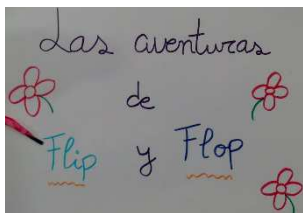 Las aventuras
de
Flip y Flop